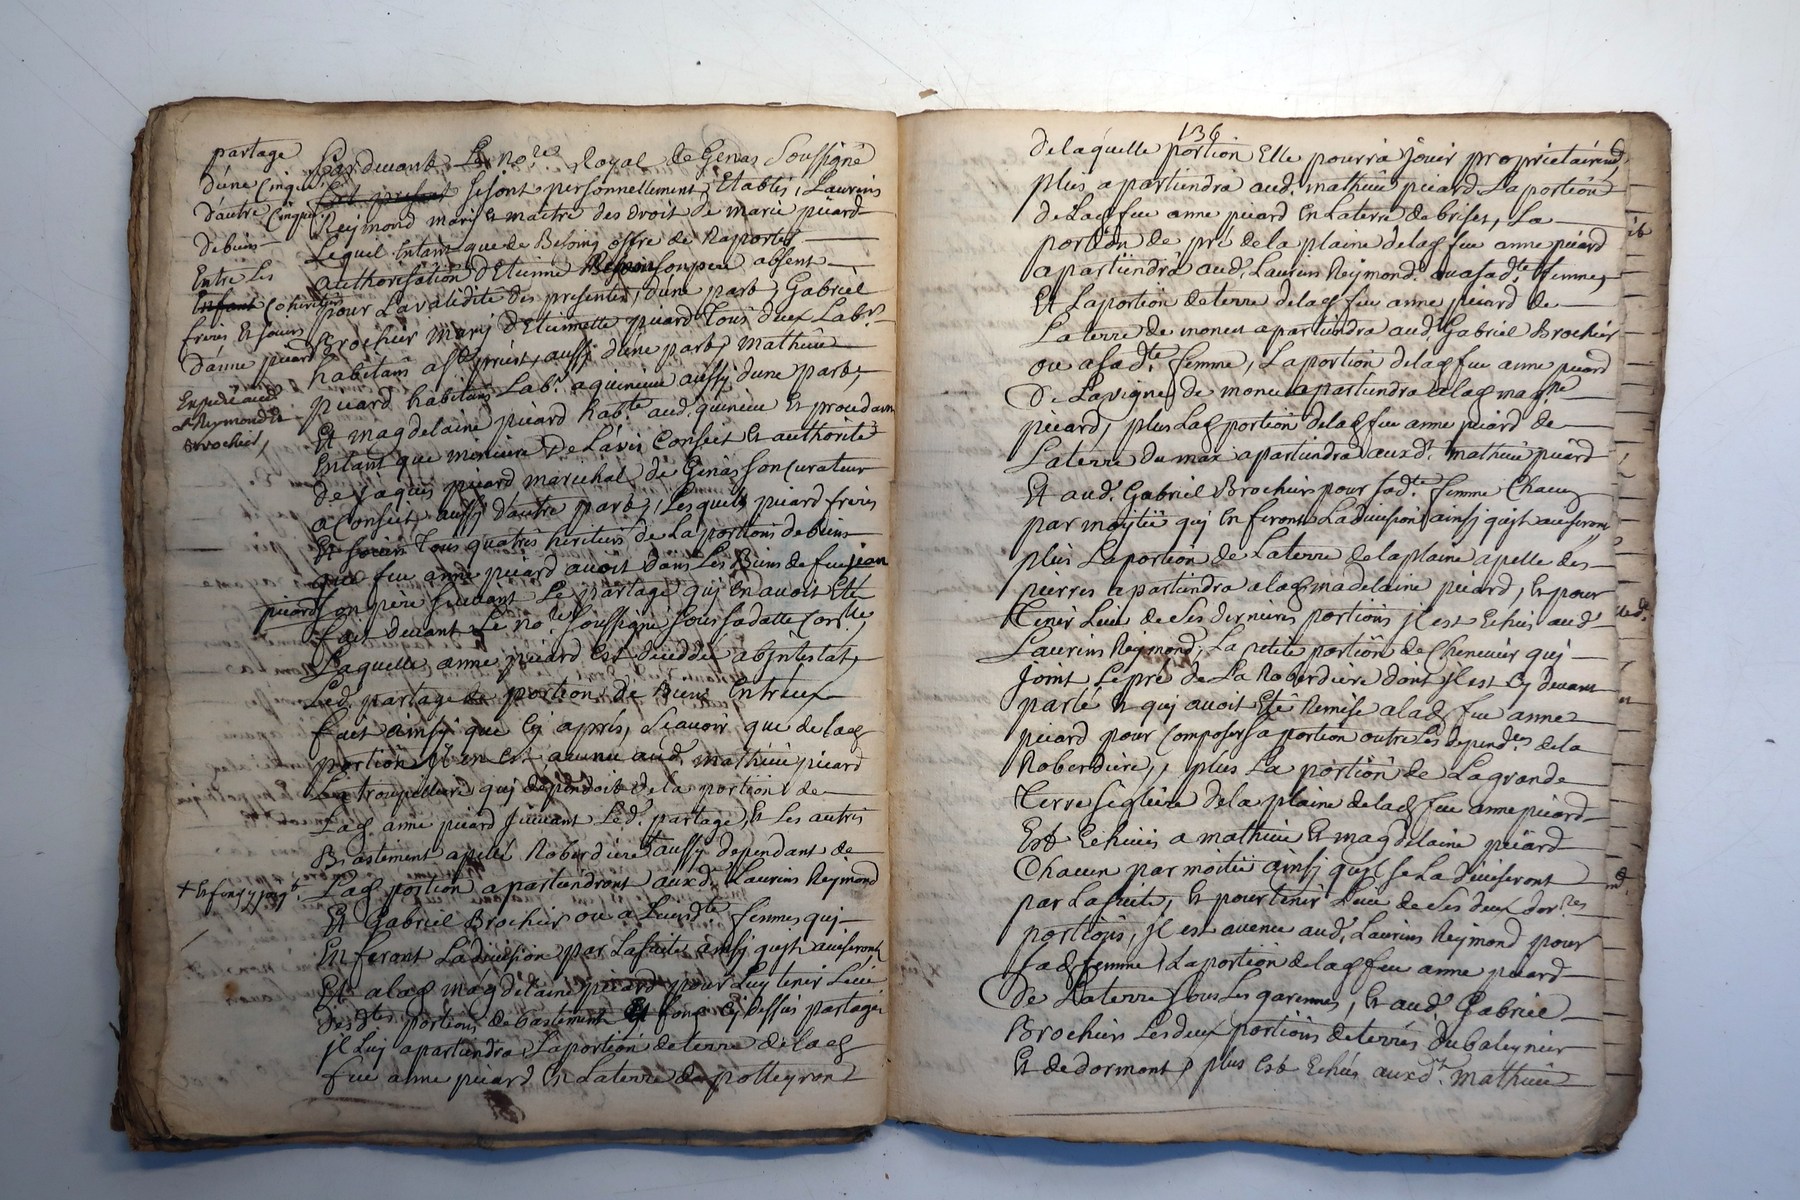 partage
d'une Cinqui
d'autre Cinqui
de biens
Entre Les
Enfant Coheritiers
freres Et soeurs
d'anne picard
Expedié aud
Reymond Et
Brochier,
Pardevant Le no.re Royal de Genas Soussigné
sont present se sont personnellement Etablis, Laurens
Reymond mary Et maitre des droit de marie picard
Lequel Entant que de Besoing offre de Raporter
authorisation d'Etienne son pere absent
pour La validité des presentes, d'une part, Gabriel
Brochier mary d'Etiennette picard tous deux Lab.rs
habitans a St priest, aussy d'une part, mathieu
picard habitant Lab.r a quinieu aussy d'une part,
Et magdelaine picard hab.te aud. quinieu Et procedant
Entant que mineure De L'avis Conseil Et authorité
de Jaques picard marechal de Genas son Curateur
a Conseil, aussy d'autre part, Lesquels picard freres
Et soeurs tous quatres heritiers de La portions de biens
que feu anne picard avoit dans Les Biens de feu jean
picard son pere suivant Le partage quj En avoit Eté
fait devant Le no.re soussigné sous sa datte
Laquelle anne picard Est deceddée abjntestat,
Led. partage de portions de Biens Entreux
fait ainsy que Cy apres, Scavoir que de lad
portion jl en est avenu aud. mathieu picard
La troupelliere quj dependoit de la portion de
Lad. anne picard suivant Led. partage, Et Les autres
Bastement apellé Roberdiere aussy dependant de
+ Et fonz y joig.t
Lad portion apartiendront auxd. Laurens Reymond
Et Gabriel Brochier ou a Leursd.te femmes quj
En feront La division par La suite ainsj quils aviseront
Et a lad magdelaine picard pour Luy tenir Lieu
desd.tes portions de bastement Et fonz Cy dessus partagé
jl Luy apartiendra La portion de terre de lad
feue anne picard En La terre de polleyron
136
de laquelle portion Elle pourra jouir proprietairem.t
plus apartiendra aud. mathieu picard La portion
de Lad feue anne picard En La terre de brises, La
portion de pré de la plaine de lad feue anne picard
apartiendra aud. Laurens Reymond. ou a sad.te femme,
Et La portion de terre de lad feue anne picard de
La terre de apartiendra aud Gabriel Brochier
ou a sad.te femme, La portion de lad feue anne picard
De La vigne de apartiendra a lad mag.ne
picard, plus Lad portion de lad feue anne picard de
La terre du max apartiendra auxd. mathieu picard
Et aud. Gabriel Brochier pour sad.te femme Chacun
par moytié quj En feront La division ainsj quils aviseront
plus La portion de La terre de la plaine apellé des
pierres apartiendra a lad madelaine picard, Et pour
tenir Lieu de Ses dernieres portions jl est Echus aud
Laurens Reymond, La petite portion de Chenevier quj
joint Le pré de La Roberdiere dont jl est Cy devant
parlé Et quj avoit Eté Remise a lad feue anne
picard pour Composer sa portion outre Les depend.es de la
Roberdiere, plus La portion de La grande
terre Segliere de la plaine de lad feue anne picard
Est Echuës a mathieu Et magdelaine picard
Chacun par moitié ainsj quils se La diviseront
par La suite, Et pour tenir Lieu de Ses deux der.res
portions, jl est avenu aud. Laurens Reymond pour
sad femme La portion de lad feue anne picard
De La terre sous Les garennes, Et aud. Gabriel
Brochier Les deux portions de terres du baleynier
Et de dormont, plus Est Echus auxd.t mathieu